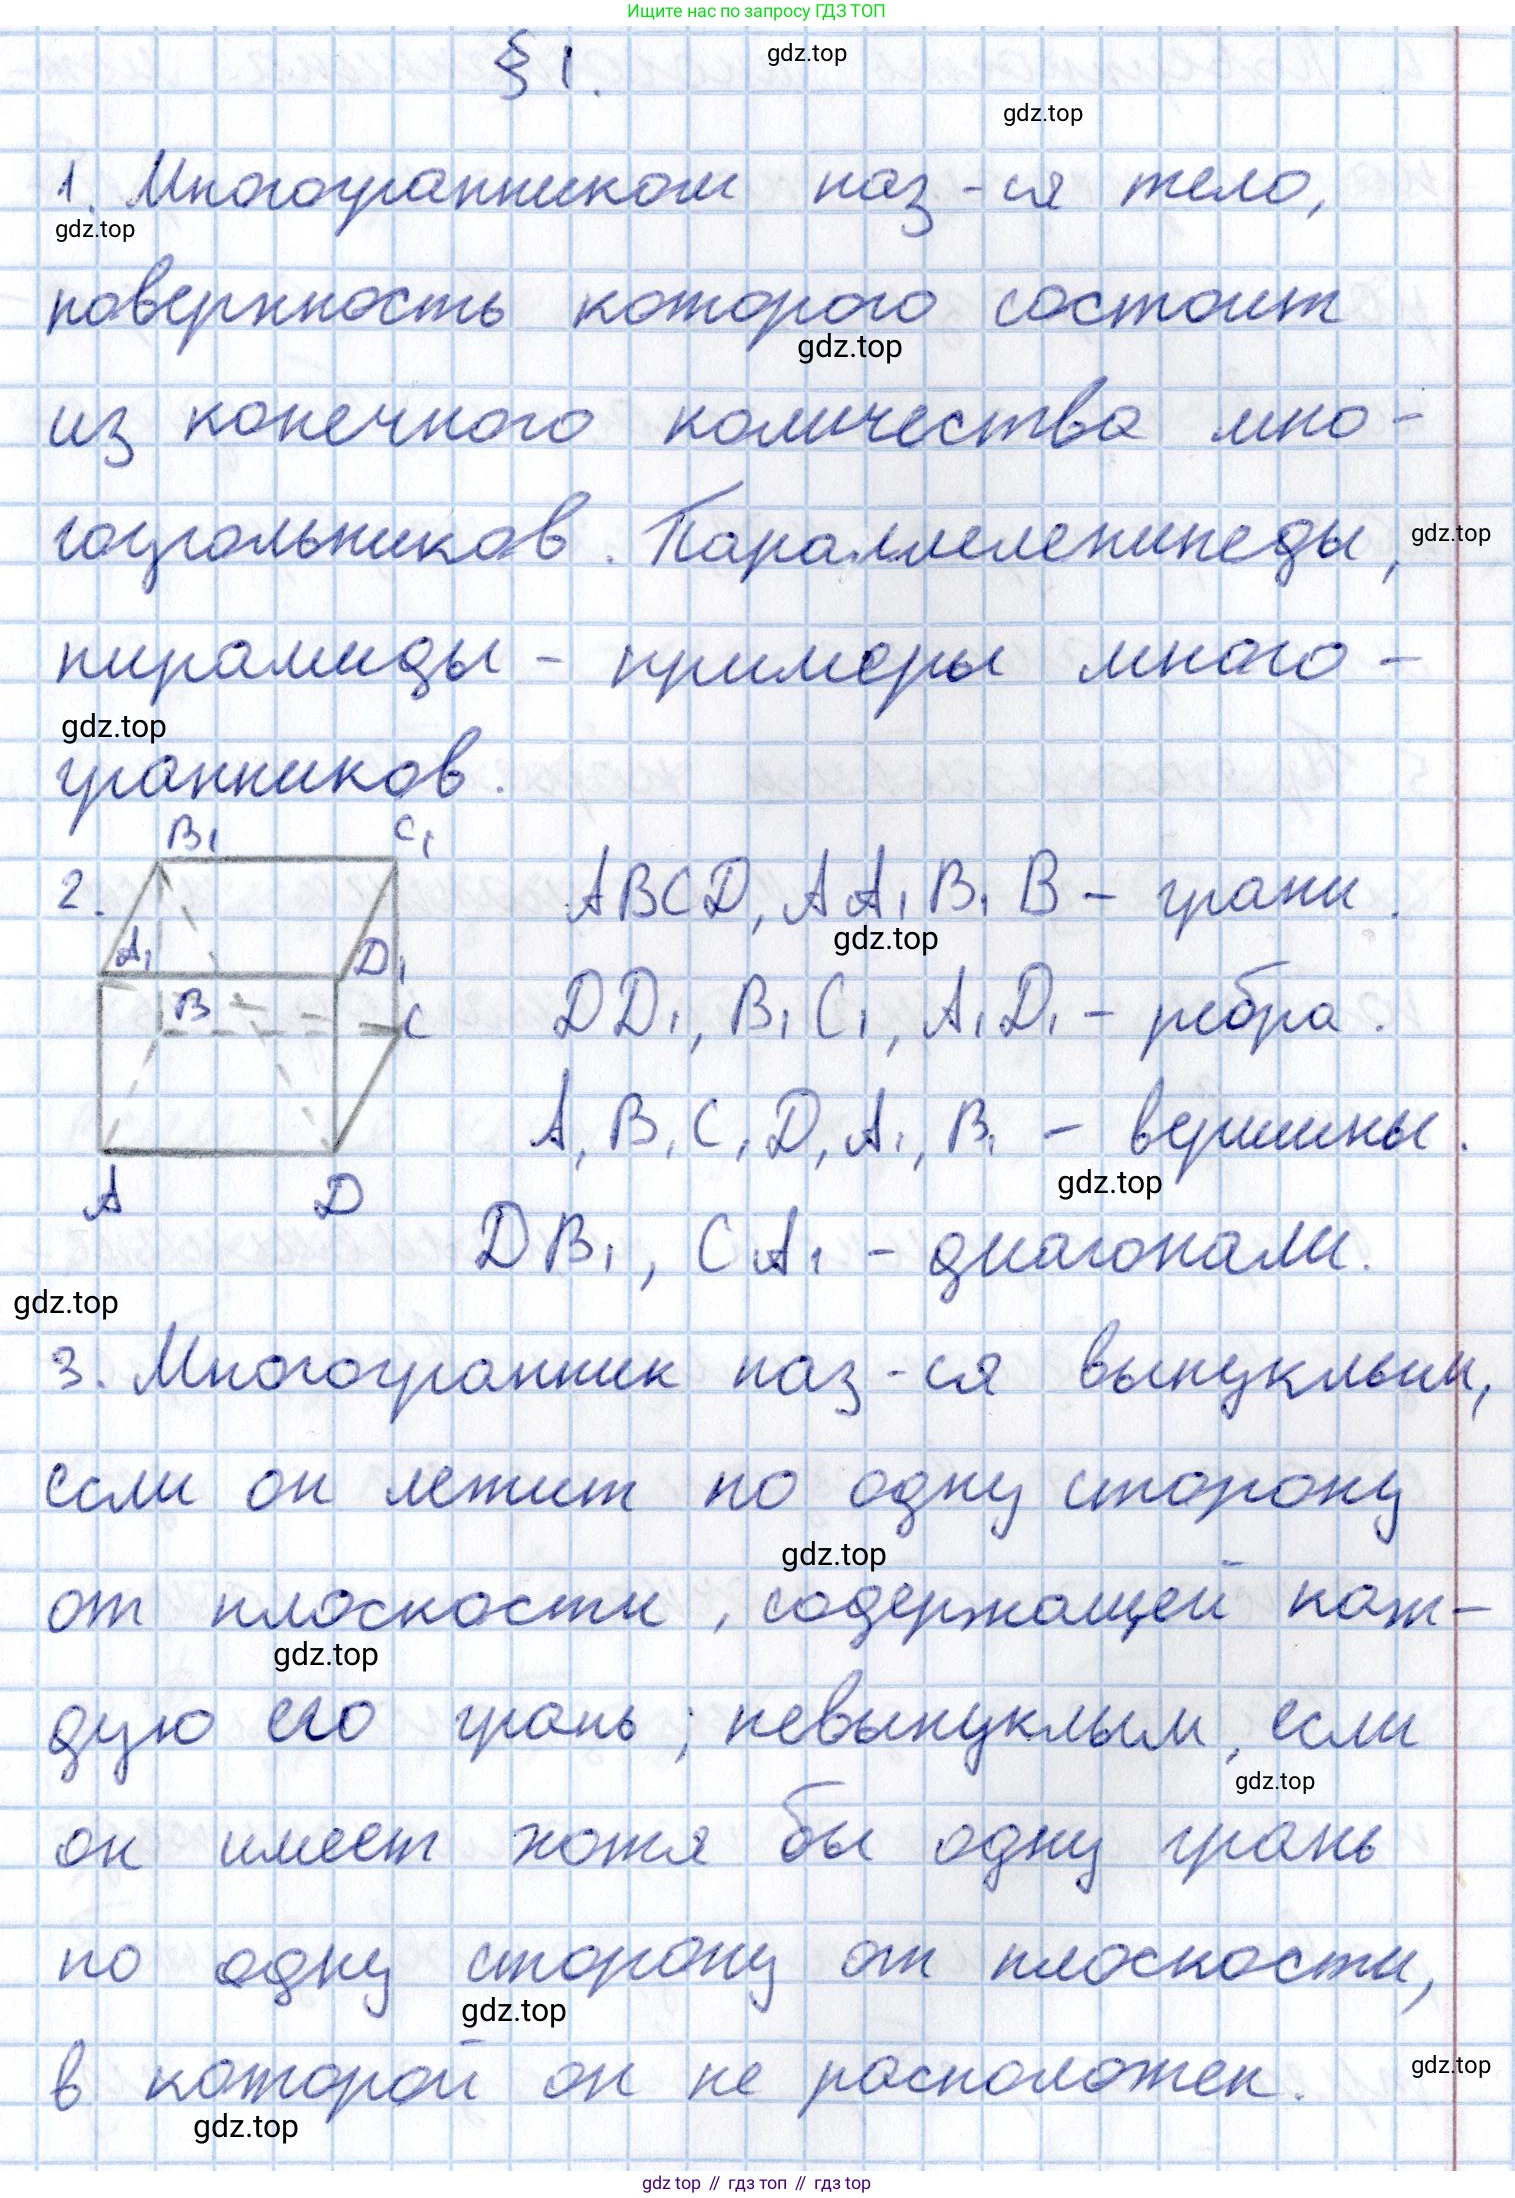 Ищите нас по запросу ГДЗ ТОП
§ 1.
gdz.top
gdz.top
1. Многогранником наз-ся тело,
gdz.top
поверхность которого состоит
gdz.top
из конечного количества мно-
гоугольников. Параллелепипеды,
gdz.top
пирамиды - примеры много-
gdz.top
гранников.
B₁ C₁
2. ABCD, AA₁B₁B - грани.
gdz.top
A₁ D₁
B C
DD₁, B₁C₁, A₁D₁ - ребра.
A, B, C, D, A₁, B₁ - вершины.
gdz.top
A D
DB₁, CA₁ - диагонали.
gdz.top
3. Многогранник наз-ся выпуклым,
если он лежит по одну сторону
gdz.top
от плоскости, содержащей каж-
gdz.top
дую его грань; невыпуклым, если
gdz.top
он имеет хотя бы одну грань
по одну сторону от плоскости,
gdz.top
в которой он не расположен.
gdz.top
gdz.top
gdz top // гдз топ // gdz top